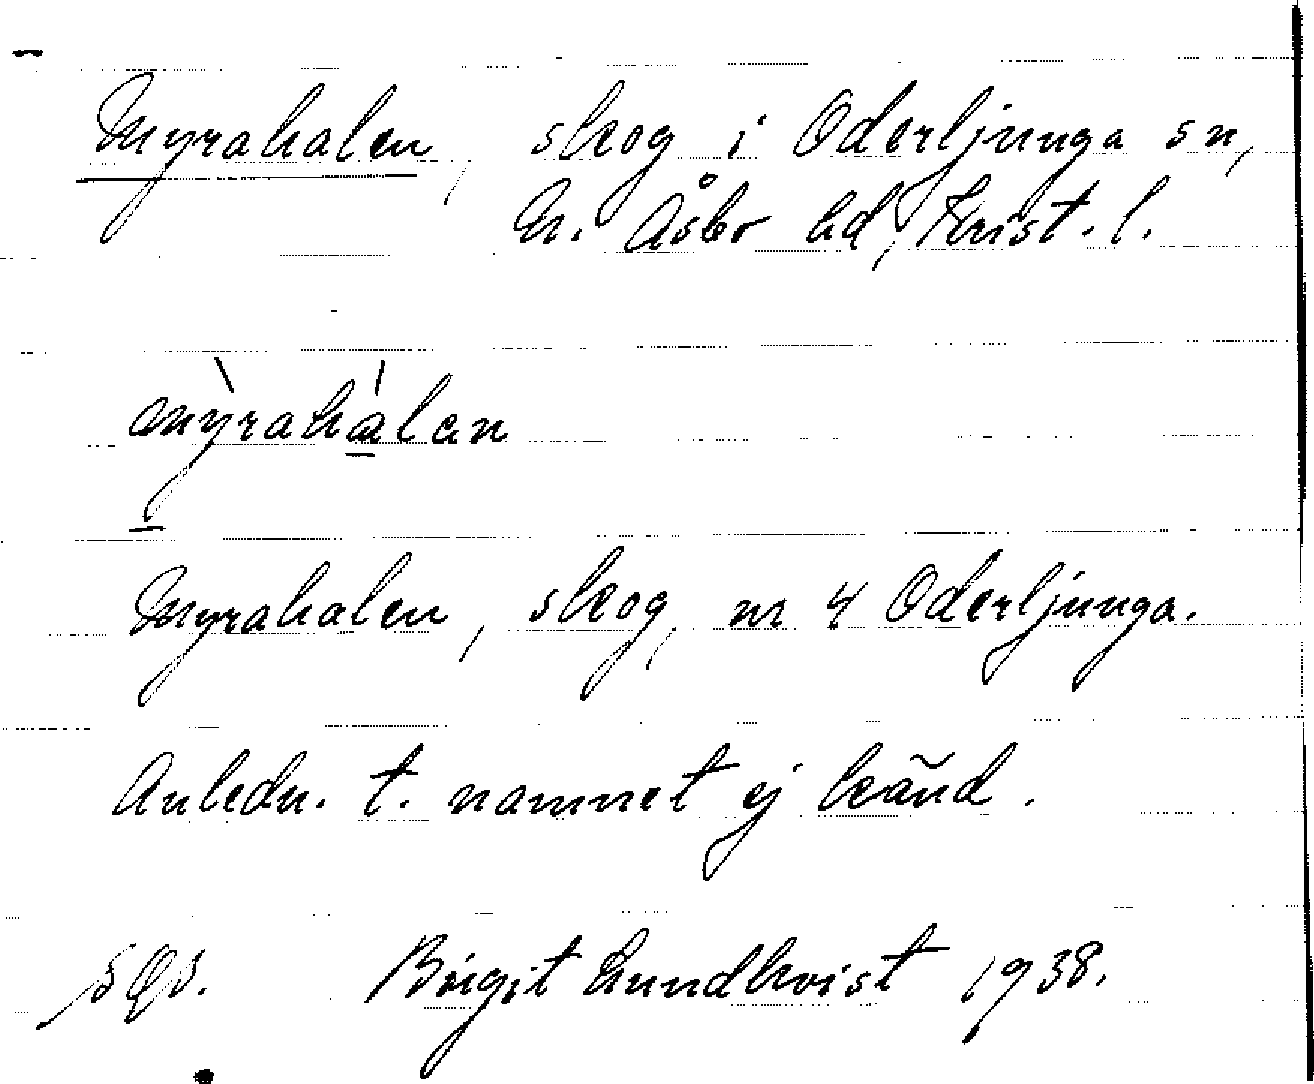 Myrahalen, skog i Oderljunga sn,
N. Åsbo hd, Krist. l.
mỳrahálan
Myrahalen, skog, nr 4 Oderljunga.
Anledn. t. namnet ej känd.
Birgit Lundkvist 1938.